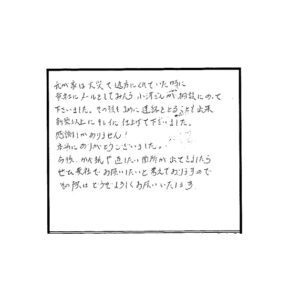 我が家は火災で途方に暮れていた時に
貴社にメールとしてみたら、小澤さんが相談にのって
下さいました。その後もまめに連絡をとることも出来
新築以上にキレイに仕上げて下さいました。
感謝しかありません!
本当にありがとうございました。
今後、わが家で直したい箇所が出てきましたら
ぜひ貴社でお願いしたいと考えておりますので
その際はどうぞよろしくお願いいたします